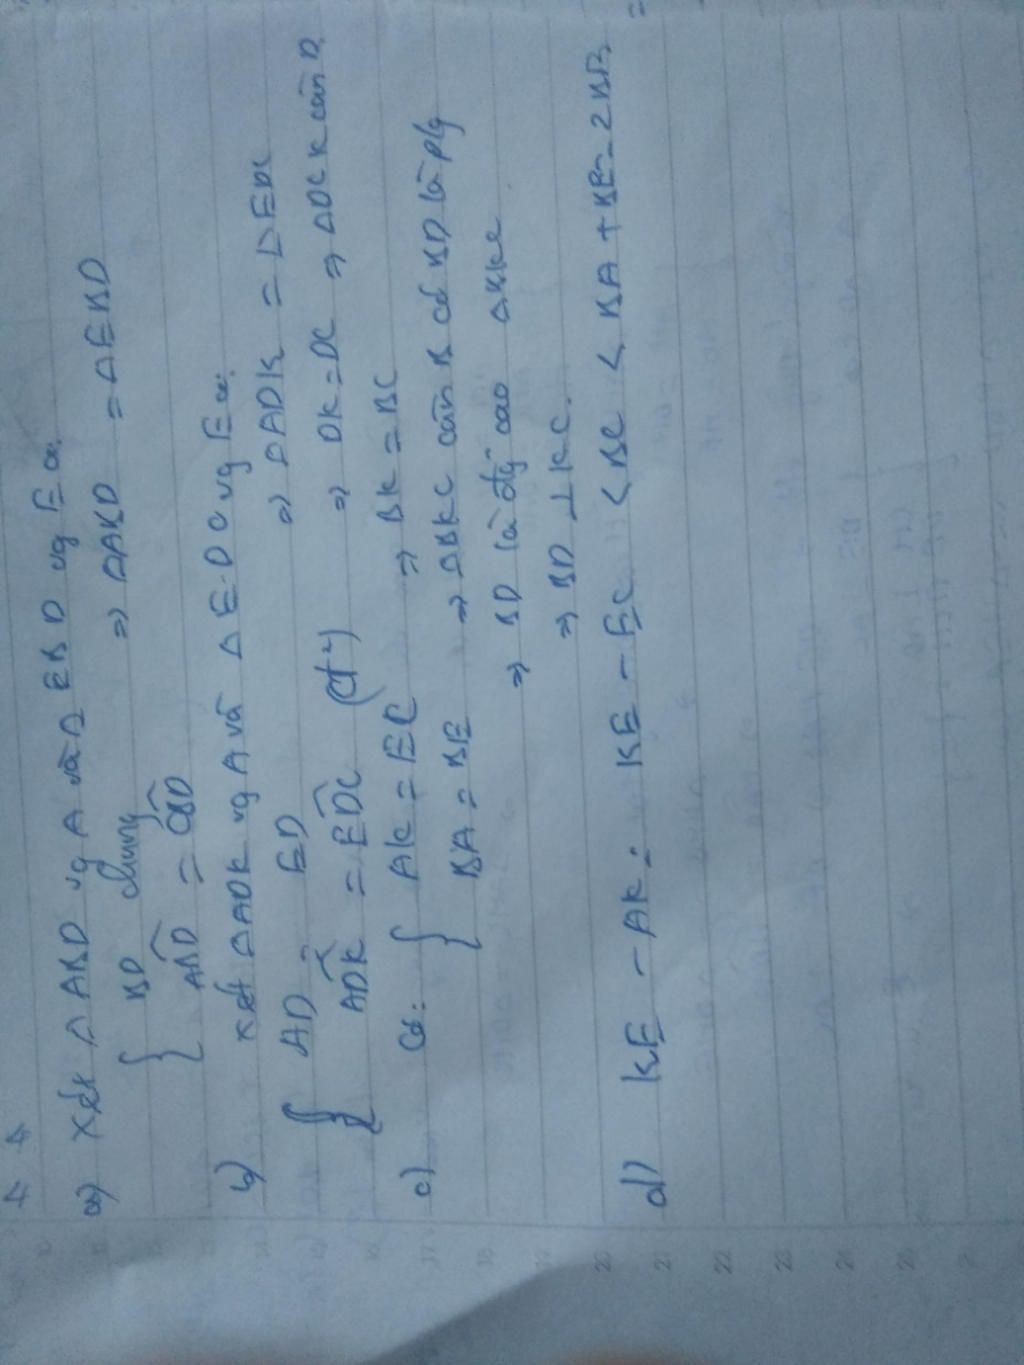 a) Xét △ABD vg A và △EBD vg E có:
{ BD chung
ABD = CBD ⇒ △ABD = △EBD
b) xét △ADK vg A và △EDC vg E có:
{ AD = ED ⇒ △ADK = △EDC
ADK = EDC (đ²) ⇒ DK = DC ⇒ △DCK cân D
c) Có: { AK = EC ⇒ BK = BC
BA = BE ⇒ △BKC cân B có BD là p/g
⇒ BD là đg cao △BKC
⇒ BD ⊥ KC.
d) KE - AK = KE - EC < BC < BA + BE = 2BA